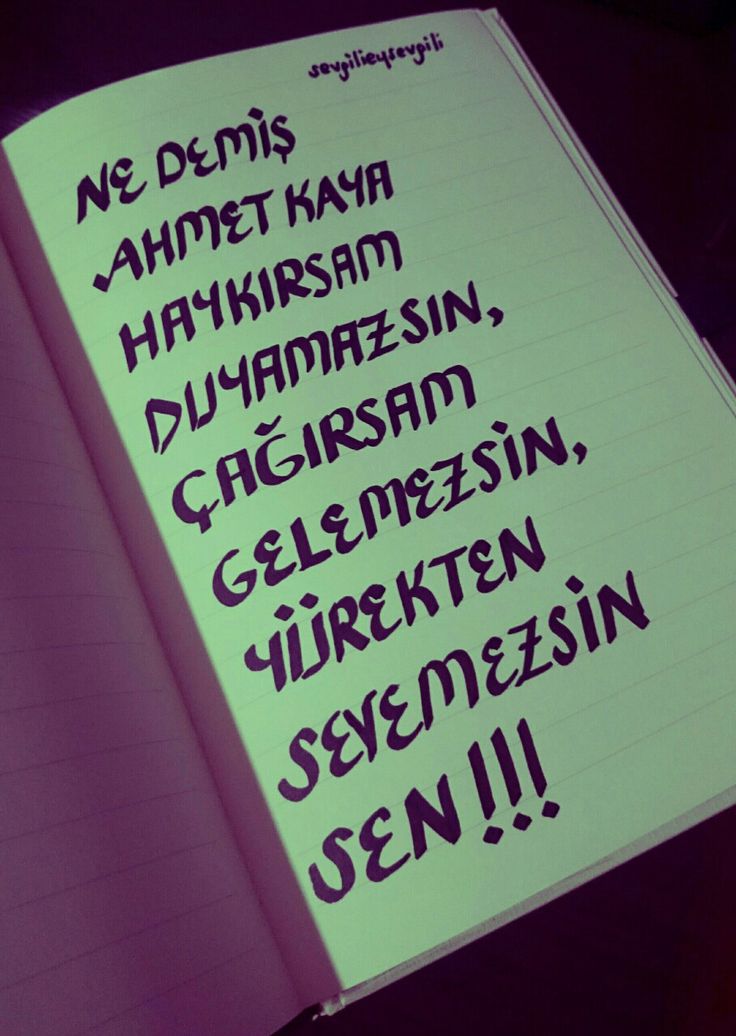 sevgilieysevgili
NE DEMİŞ
AHMET KAYA
HAYKIRSAM
DUYAMAZSIN,
ÇAĞIRSAM
GELEMEZSİN,
YÜREKTEN
SEVEMEZSİN
SEN!!!